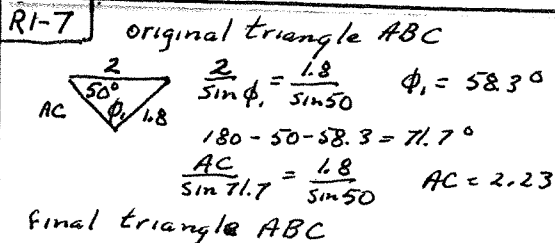 R1-7 original triangle ABC
2
50°
AC φ₁ 1.8
2/sin φ₁ = 1.8/sin 50 φ₁ = 58.3°
180 - 50 - 58.3 = 71.7°
AC/sin 71.7 = 1.8/sin 50 AC = 2.23
final triangle ABC